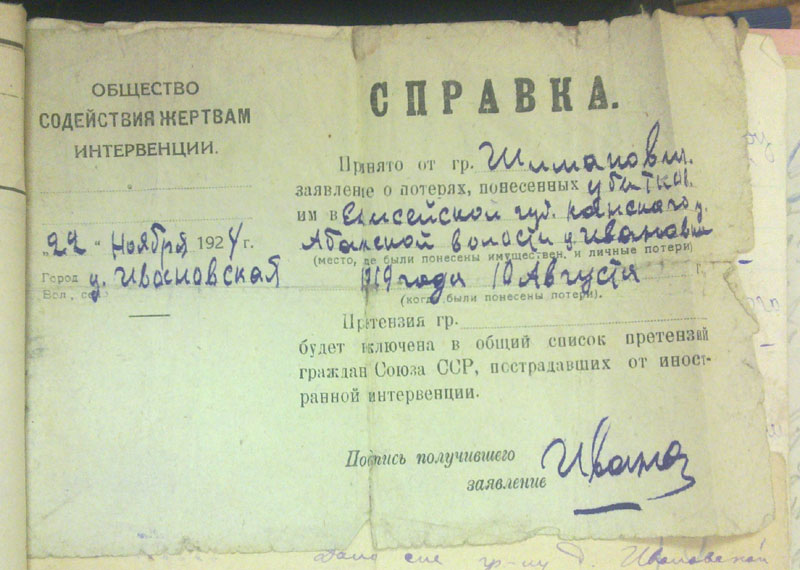 ОБЩЕСТВО
СОДЕЙСТВИЯ ЖЕРТВАМ
ИНТЕРВЕНЦИИ.
"22" Ноября 1924 г.
Город д. Ивановская
Вол., село
СПРАВКА.
Принято от гр. Шиманович.
заявление о потерях, понесенных убытки.
им в Енисейской губ. Канского у.
Абанской волости д. Ивановки
(место, где были понесены имуществен. и личные потери)
1919 года 10 Августа
(когда были понесены потери).
Претензия гр.
будет включена в общий список претензий
граждан Союза ССР, пострадавших от иност-
ранной интервенции.
Подпись получившего
заявление
Дано сие гр-ну д. Ивановской